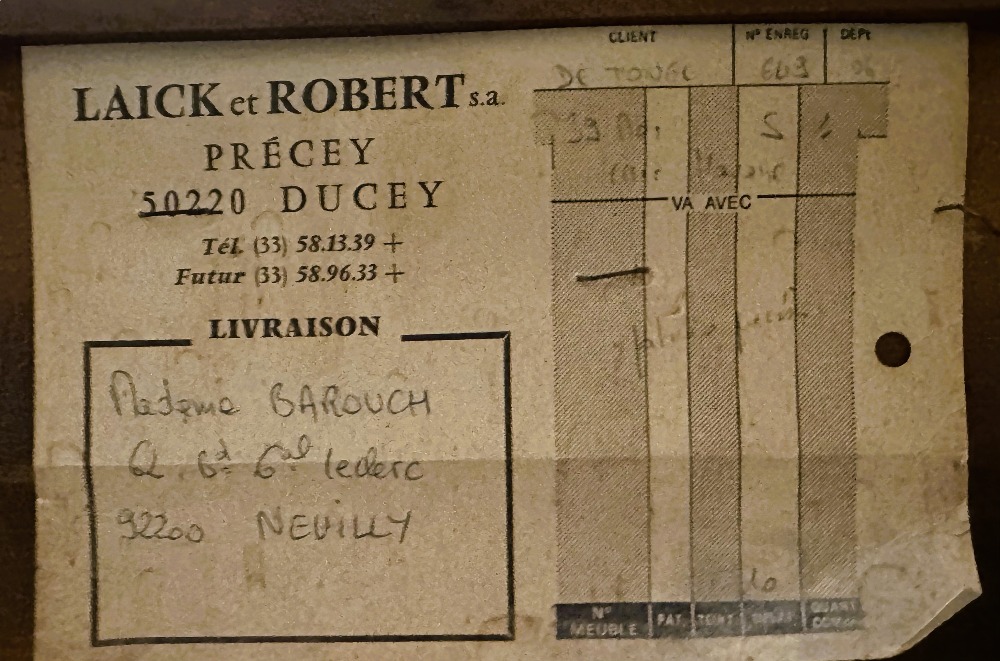 LAICK et ROBERT s.a.
PRÉCEY
50220 DUCEY
Tél. (33) 58.13.39 +
Futur (33) 58.96.33 +
LIVRAISON
Madame BAROUCH
bd Gal leclerc
92200 NEUILLY
CLIENT N° ENREG DEPT
DE
VA AVEC
N° MEUBLE PAT. TEINT QUANT